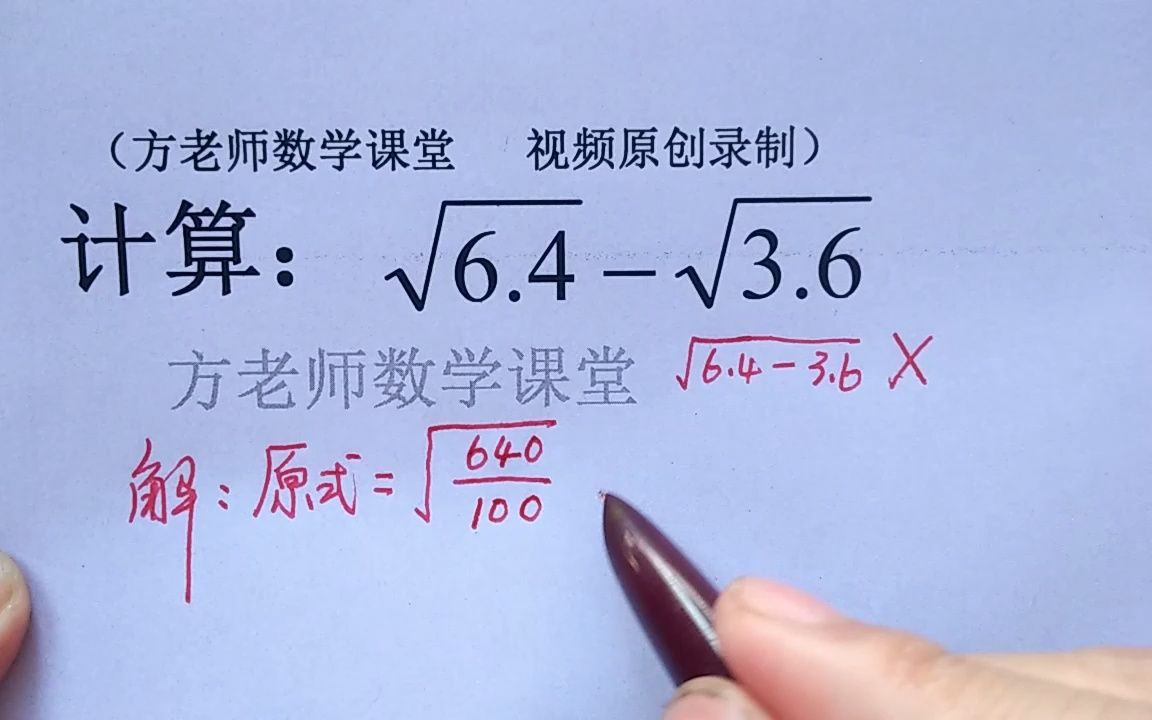 （方老师数学课堂 视频原创录制）
计算：√6.4 − √3.6
方老师数学课堂
√(6.4 − 3.6) X
解：原式 = √(640/100)